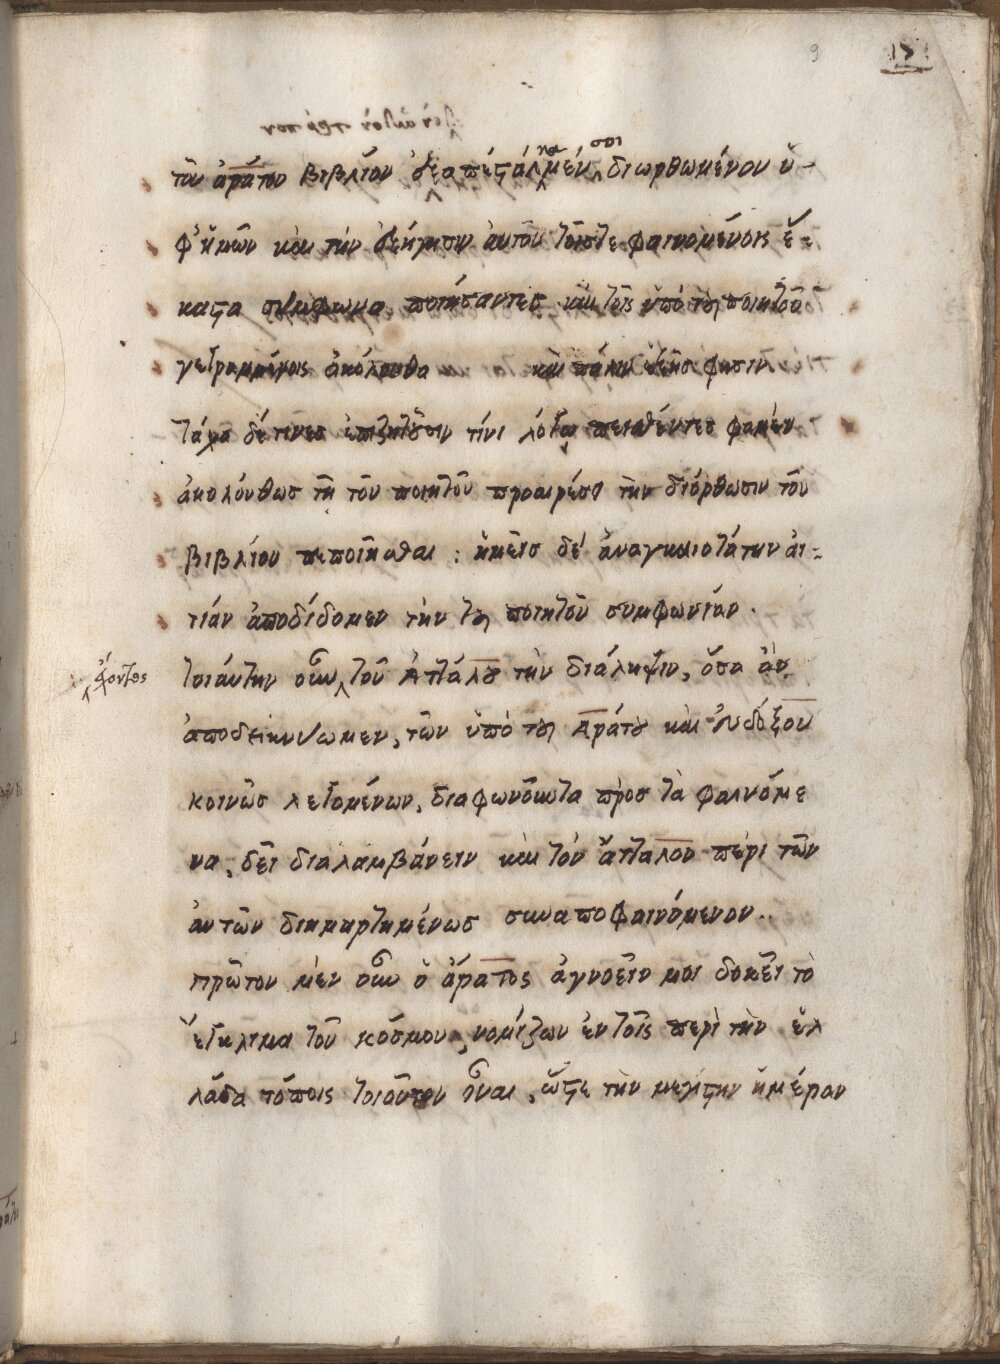 9
τοῦ ἀράτου βιβλίον ἐξαπέσάλκαμέν σοι διωρθωμένον ὑ-
φ᾽ ἡμῶν καὶ τὴν ἐξήγησιν ἀυτοῦ τοῖστε φαινομένοις ἕ-
κασα σύμφωνα ποιήσαντεσ καὶ τοῖς ὑπὸ τοῦ ποιητοῦ
γεγραμμένοις ἀκόλουθα καὶ πάλιν ἑξῆσ φησιν
τάχα δέ τινεσ ἐπιζητοῦσιν τίνι λόγῳ πεισθέντεσ φαμὲν
ἀκολόυθωσ τῆ τοῦ ποιητοῦ προαιρέσει τὴν διόρθωσιν τοῦ
βιβλίου πεποιῆσθαι : ἡμεῖσ δὲ ἀναγκαιοτάτην ἀι-
τίαν ἀποδίδομεν τὴν τοῦ ποιητοῦ συμφωνίαν.
τοιάυτην οὖν τοῦ Ἀττάλου τὴν διάληψιν, ὅσα ἂν
ἔχοντος
ἀποδεικνύωμεν, τῶν ὑπὸ τοῦ Ἀράτου καὶ ἐυδόξου
κοινῶσ λεγομένων, διαφωνοῦντα πρὸσ τὰ φαινόμε
να, δεῖ διαλαμβάνειν καὶ τὸν ἄτταλον περὶ τῶν
ἀυτῶν διημαρτημένωσ συναποφαινόμενον.
πρῶτον μὲν οὖν ὁ ἄρατος ἀγνοεῖν μοι δοκεῖ τὸ
ἔγκλιμα τοῦ κόσμου, νομίζων ἐν τοῖς περὶ τὴν ἑλ
λάδα τόποις τοιοῦτον εἶναι, ὥσε τὴν μεγίσην ἡμέραν